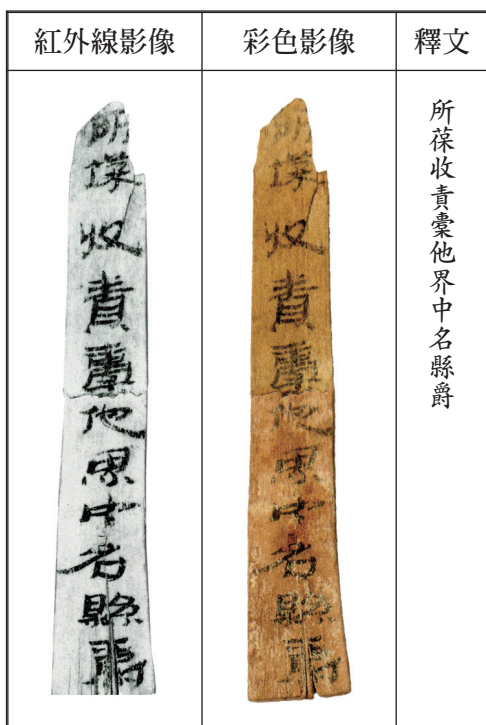 紅外線影像
彩色影像
釋文
所葆收責橐他界中名縣爵
所葆收責橐他界中名縣爵
所葆收責橐他界中名縣爵